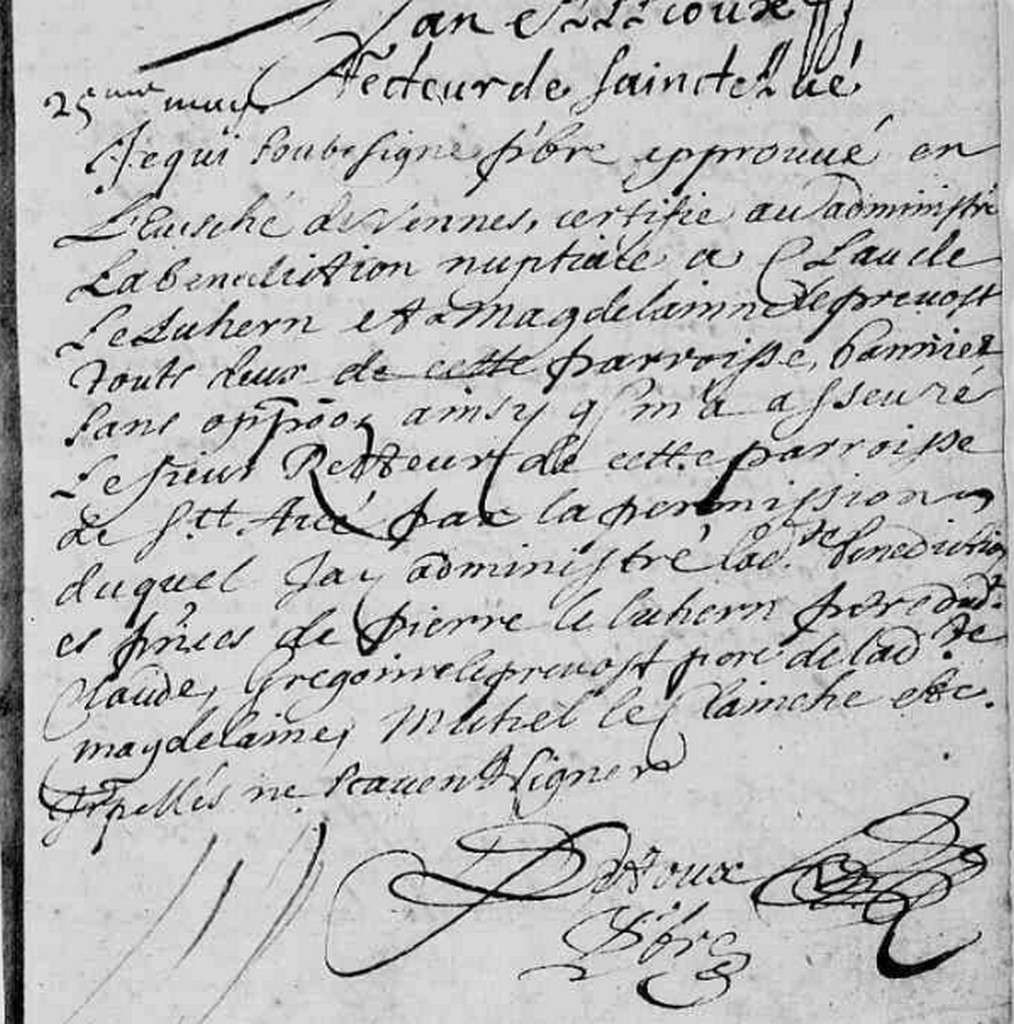 Recteur de Saincte Avé
25me may
Je qui soubsigné pbre approuvé en
L'Evesché de Vennes, certifie avoir administré
La benediction nuptiale a Claude
Le Luhern et a Magdelainne le prevost
touts deux de cette parroisse, bannies
sans oppoon ainsy q m'a asseuré
Le sieur Recteur de cette parroisse
de Stt Avé par la permission
duquel Jay administré lad.te benediction
es pnces de pierre le luhern pere dud.
Claude, Gregoire le prevost pere de lad.te
magdelaine, Michel le Clainche etc.
Jrpellés ne scavent signer
Pbre